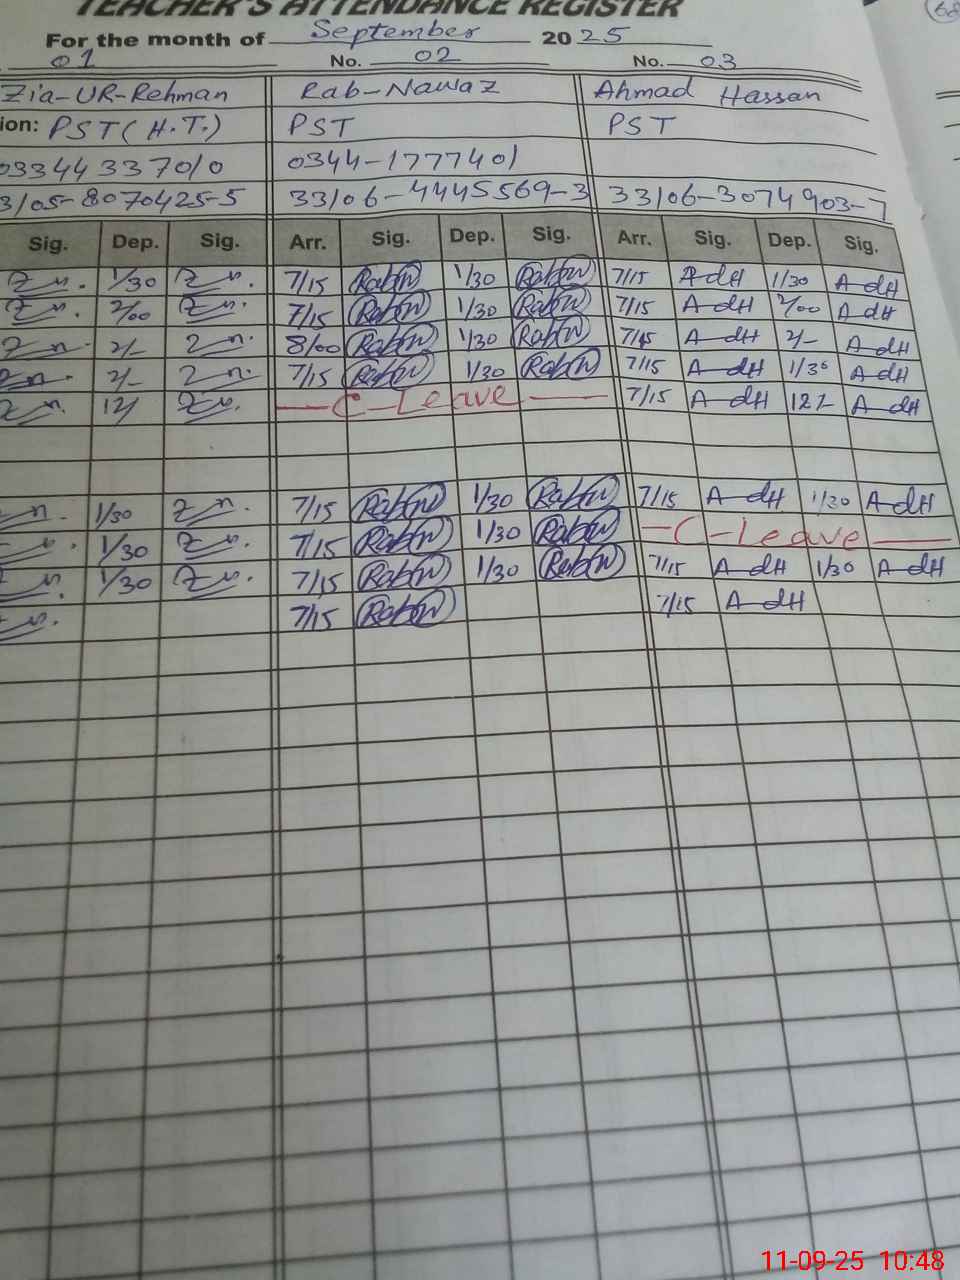 TEACHER'S ATTENDANCE REGISTER
For the month of September 2025
01 No. 02 No. 03
Zia-UR-Rehman Rab-Nawaz Ahmad Hassan
ion: PST (H.T.) PST PST
03344337010 0344-1777401
3105-8070425-5 33106-4445569-3 33106-3074903-7
Sig. Dep. Sig. Arr. Sig. Dep. Sig. Arr. Sig. Dep. Sig.
1/30 7/15 1/30 7/15 AdH 1/30 AdH
2/00 7/15 1/30 7/15 AdH 2/00 AdH
2/- 8/00 1/30 7/15 AdH 2/- AdH
2/- 7/15 1/30 7/15 AdH 1/30 AdH
12/ C-Leave 7/15 AdH 12/- AdH
1/30 7/15 1/30 7/15 AdH 1/30 AdH
1/30 7/15 1/30 C-Leave
1/30 7/15 1/30 7/15 AdH 1/30 AdH
7/15 7/15 AdH
11-09-25 10:48